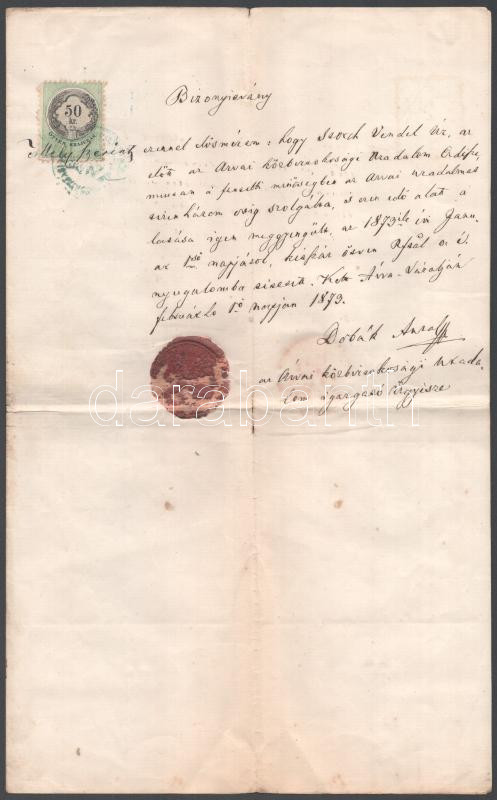 Bizonyítvány
50
kr.
Mely szerint ezennel elismérem: hogy Szech Vendel Úr, az
előtt az Árvai közbirtokossági Uradalom Erdésze,
miután a fentebbi minőségben az Árvai uradalmat
évig szolgálta, is ezen idő alatt a
látása igen meggyengült, az 1873ik év Janu-
az 1ső napjától,
nyugalomba Kelt Árva-Váralján
februárho 1ő napján 1873.
Dobák Antal
az Árvai közbirtokossági Urada-
lom igazgató Ügyésze
darabanth